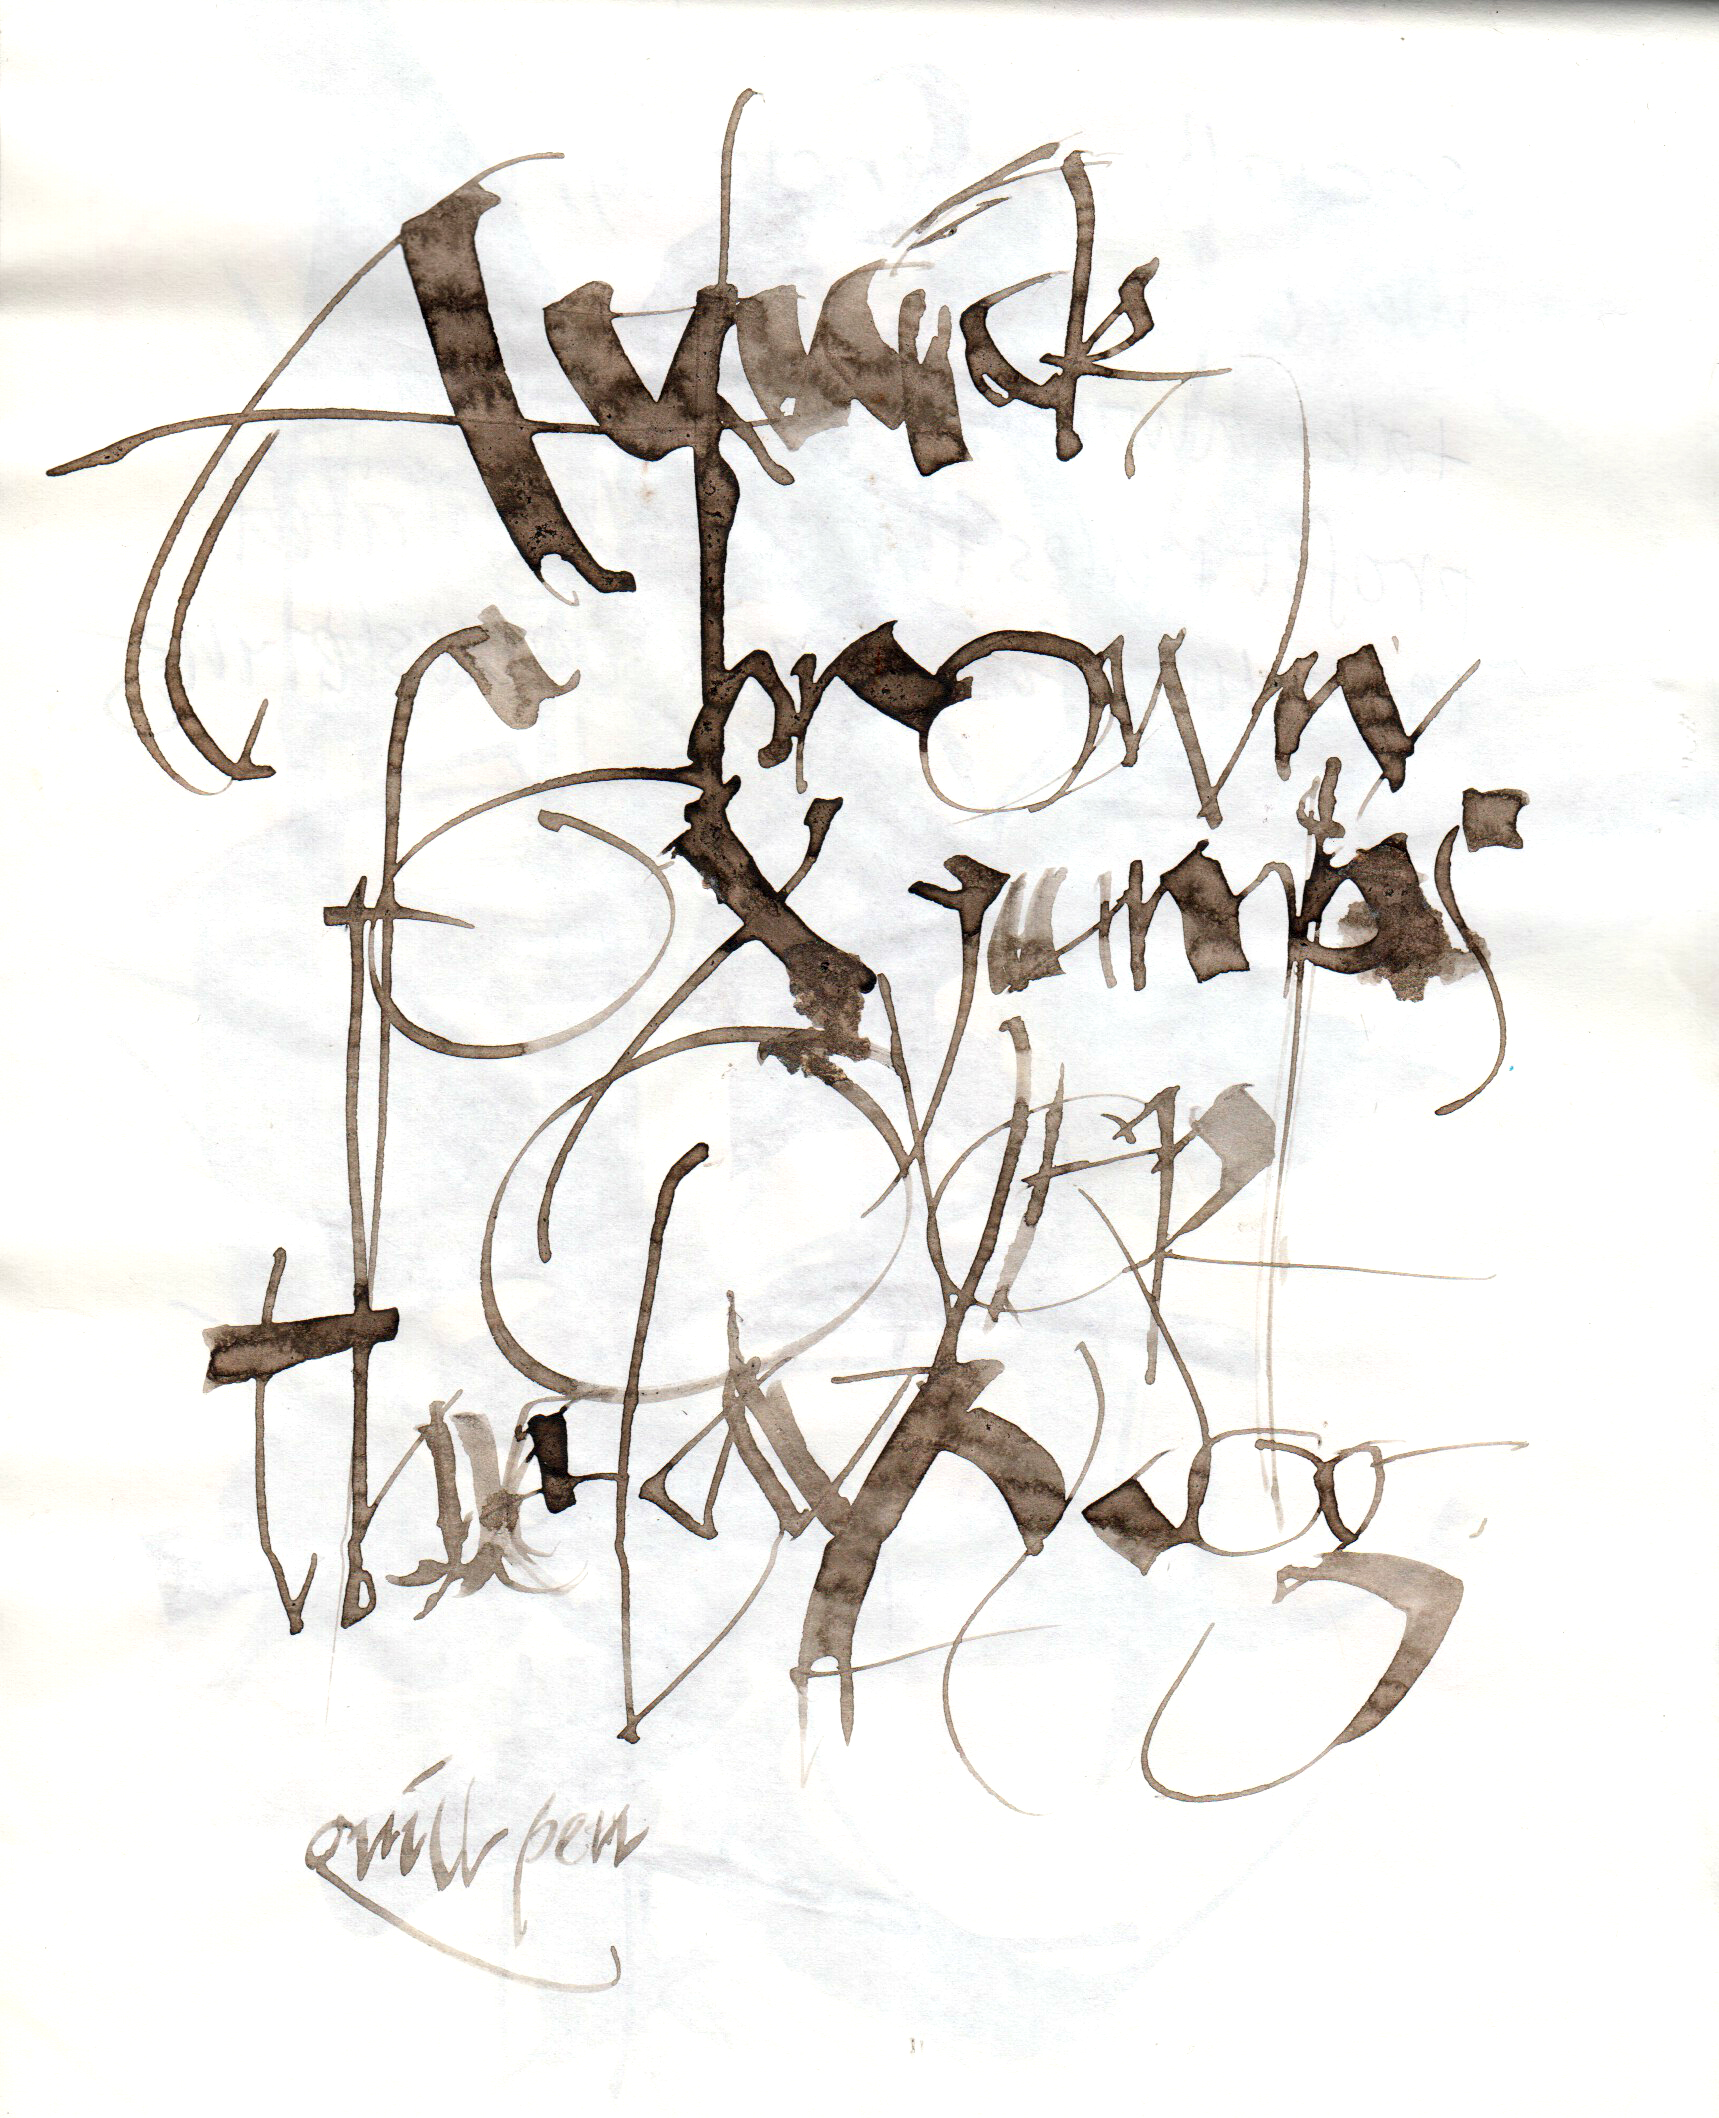 A quick
brown
fox jumps
over
the lazy dog
quill pen